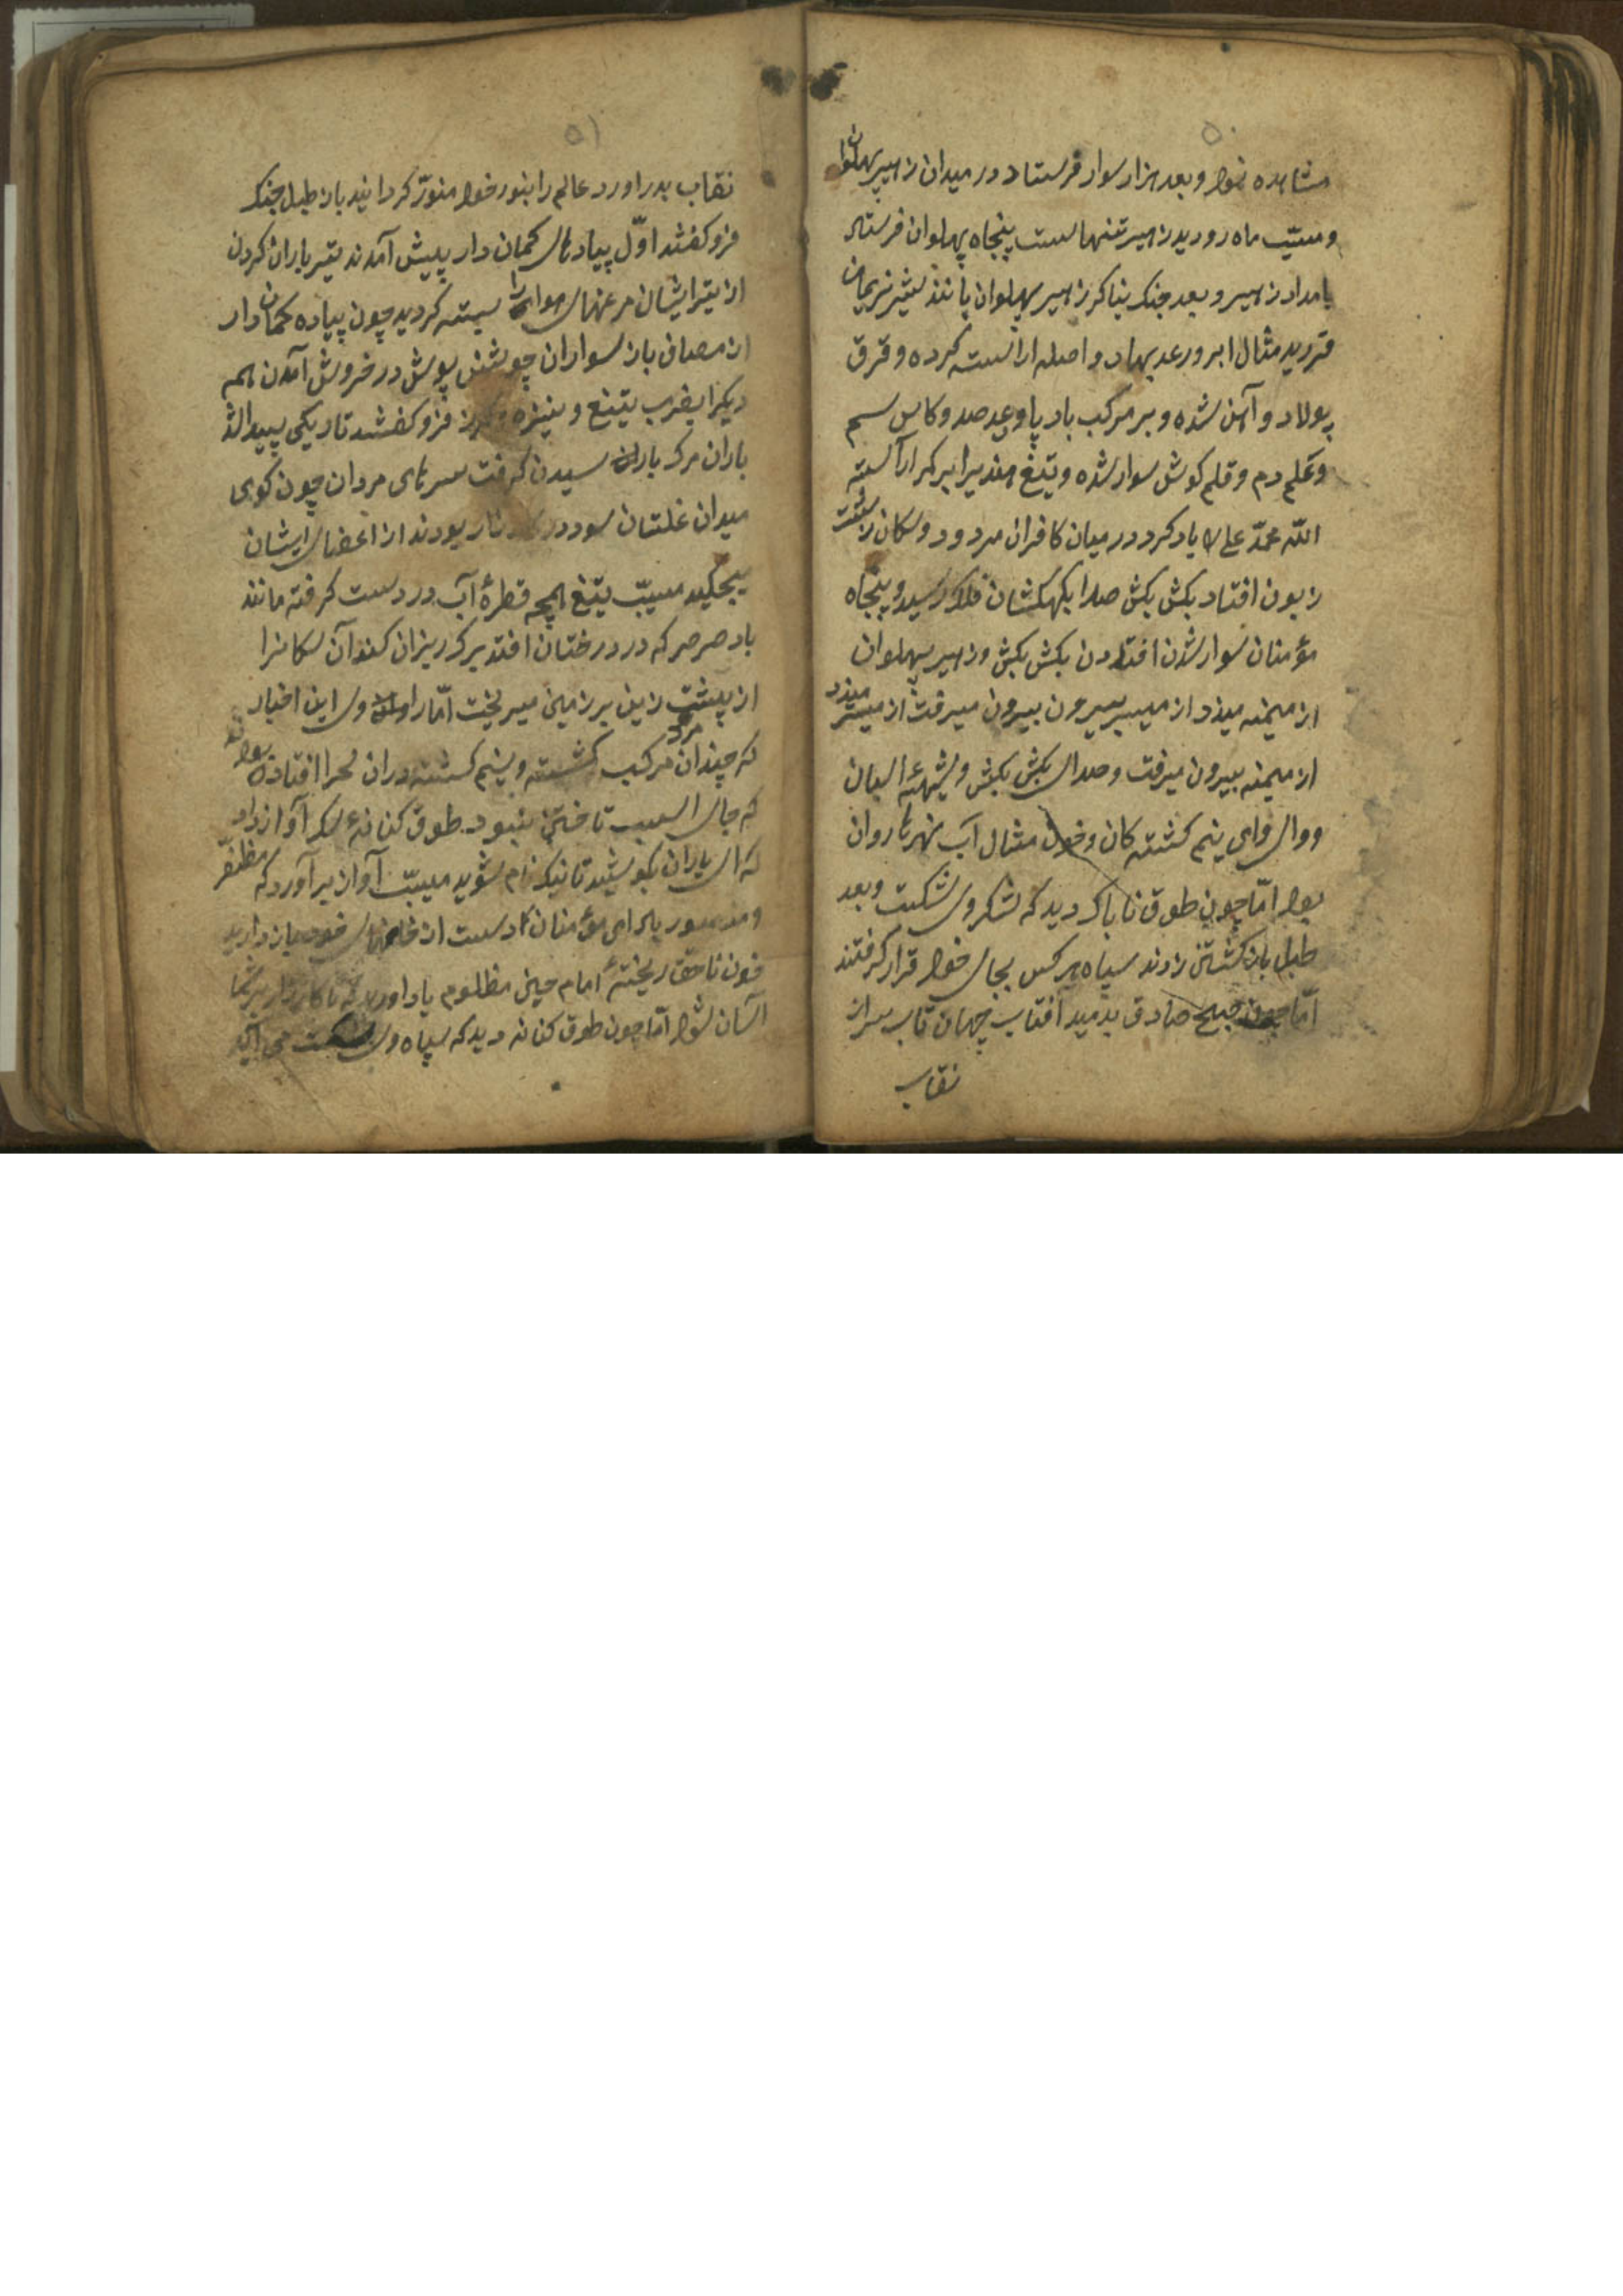 ۵۰
مشاهده نمود و بعد هزار سوار فرستاد در میدان زهیر پهلوان
و مسیّب ماه رو دید زهیر تنهاست پنجاه پهلوان فرستاد
بامداد زهیر و بعد جنک بنا کر زهیر پهلوان مانند شیر نریمان
مثال ابر و رعد بهاد و اصله اراسته کرده و غرق
پولاد و آهن شده و بر مرکب باد پا و عد صد و کاس سم
و علم دم و قلم کوش سوار شده و تیغ هندیرا بر کمر آراسته
اللّه محمّد علی یاد کرد در میان کافران مردود و سکان
زبون افتاد بکش بکش صدا بکهکشان فلک رسید و پنجاه
مؤمنان سوار شدن افتادن بکش بکش و زهیر پهلوان
از میمنه میزد از میسیره بیرون میرفت از میسره میزد
از میمنه بیرون میرفت و صدای بکش بکش و شیهۀ اسبان
و وای وای نیم کشته کان و خون مثال آب نهرها روان
بود امّا چون طوق ناپاک دید که لشکر وی شکست و بعد
طبل باز کشتن زدند سپاه هر کس بجای خود قرار کرفتند
امّا چون صبح صادق بدمید افتاب جهان تاب سر از
نقاب
۵۱
نقاب بدر اورد عالم را بنور خود منوّر کردانید باز طبل جنک
فرو کفتند اوّل پیادهای کمان دار پیش آمدند تیر باران کردن
از تیر ایشان مرغهای هوا را بسته کردید چون پیاده کمان دار
از مصاف باز سواران جوشن پوش در خروش آمدن همه
دیکرا بضرب تیغ و نیزه و کرز فرو کفتند تاریکی پیدا شد
باران مرک باریدن کرفت سرهای مردان چون کوی
میدان غلتان بود در بودند از اعضای ایشان
میچکید مسیّب تیغ همچه قطرۀ آب در دست کرفته مانند
باد صرصر که در درختان افتد برک ریزان کند آن سکانرا
از پشت زین بر زمین میریخت امّا راوی این اخبار
که چندان مرد مرکب کشته و نیم کشته دران صحرا افتاده بود
که جای اسب تاختن نبود طوق کنانۀ سک آواز داد
که ای یاران بکوشید تا نیک نام شوید مسیّب آواز برآورد که مظفّر
و منصور باد ای مؤمنان دست از خود باز دارید
خون ناحق ریختۀ امام حسین مظلوم یاد اورید تا کارزار بر شما
آسان شود امّا چون طوق کنانه دید که سپاه وی شکست می